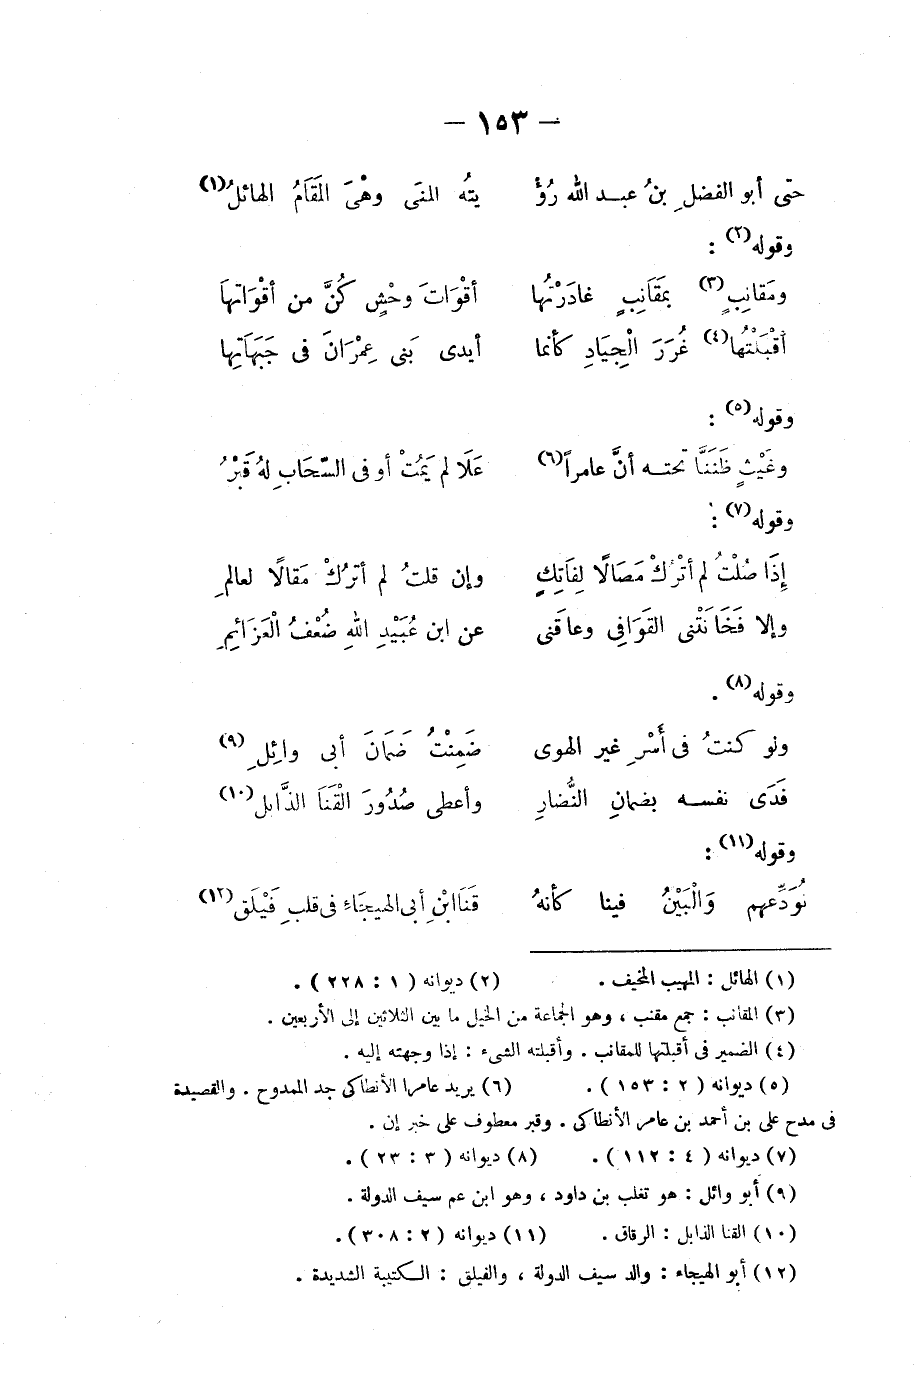 — ١٥٣ —
حتّى أبو الفضل ِ بنُ عبد الله رُؤْ يتُه المنَى وهْىَ المَقَامُ الهائلُ(١)
وقوله(٢) :
ومَقانِبٍ(٣) بمَقَانِبٍ غادَرْتُها أقْوَاتَ وحْشٍ كُنَّ من أقْوَاتها
أقْبَلْتُها(٤) غُرَرَ الْجِيَادِ كأنما أيدى بَنى عِمْرَانَ فى جَبَهَاتِها
وقوله(٥) :
وغَيْثٍ ظَنَنَّا تحته أنَّ عامراً(٦) عَلَا لم يَمُتْ أو فى السَّحَابِ لهُ قَبْرُ
وقوله(٧) :
إِذَا صُلْتُ لم أتْرُكْ مَصَالًا لِفَاتِكٍ وإن قلتُ لم أترُكْ مَقالًا لعالمِ
وإلا فَخَانَتْنى القَوَافِي وعاقَنى عن ابن عُبَيْدِ اللهِ ضُعْفُ الْعَزَائِمِ
وقوله(٨) .
ولو كنتُ فى أَسْرِ غير الهوى ضَمِنْتُ ضَمَانَ أبى وائِلِ(٩)
فَدَى نفسه بضمانِ النُّضارِ وأعطى صُدُورَ الْقَنَا الذَّابل(١٠)
وقوله(١١) :
نُوَدِّعهم وَالْبَيْنُ فينا كأنهُ قَنَا ابْنِ أبى الهيجَاءِ فى قلبِ فَيْلَقِ(١٢)
(١) الهائل : المهيب المخيف . (٢) ديوانه ( ١ : ٢٢٨ ) .
(٣) المقانب : جمع مقنب ، وهو الجماعة من الخيل ما بين الثلاثين إلى الأربعين .
(٤) الضمير فى أقبلتها للمقانب . وأقبلته الشىء : إذا وجهته إليه .
(٥) ديوانه ( ٢ : ١٥٣ ) . (٦) يريد عامرا الأنطاكى جد الممدوح . والقصيدة
فى مدح على بن أحمد بن عامر الأنطاكى . وقبر معطوف على خبر إن .
(٧) ديوانه ( ٤ : ١١٢ ) . (٨) ديوانه ( ٣ : ٢٣ ) .
(٩) أبو وائل : هو تغلب بن داود ، وهو ابن عم سيف الدولة .
(١٠) القنا الذابل : الرقاق . (١١) ديوانه ( ٢ : ٣٠٨ ) .
(١٢) أبو الهيجاء : والد سيف الدولة ، والفيلق : الكتيبة الشديدة .